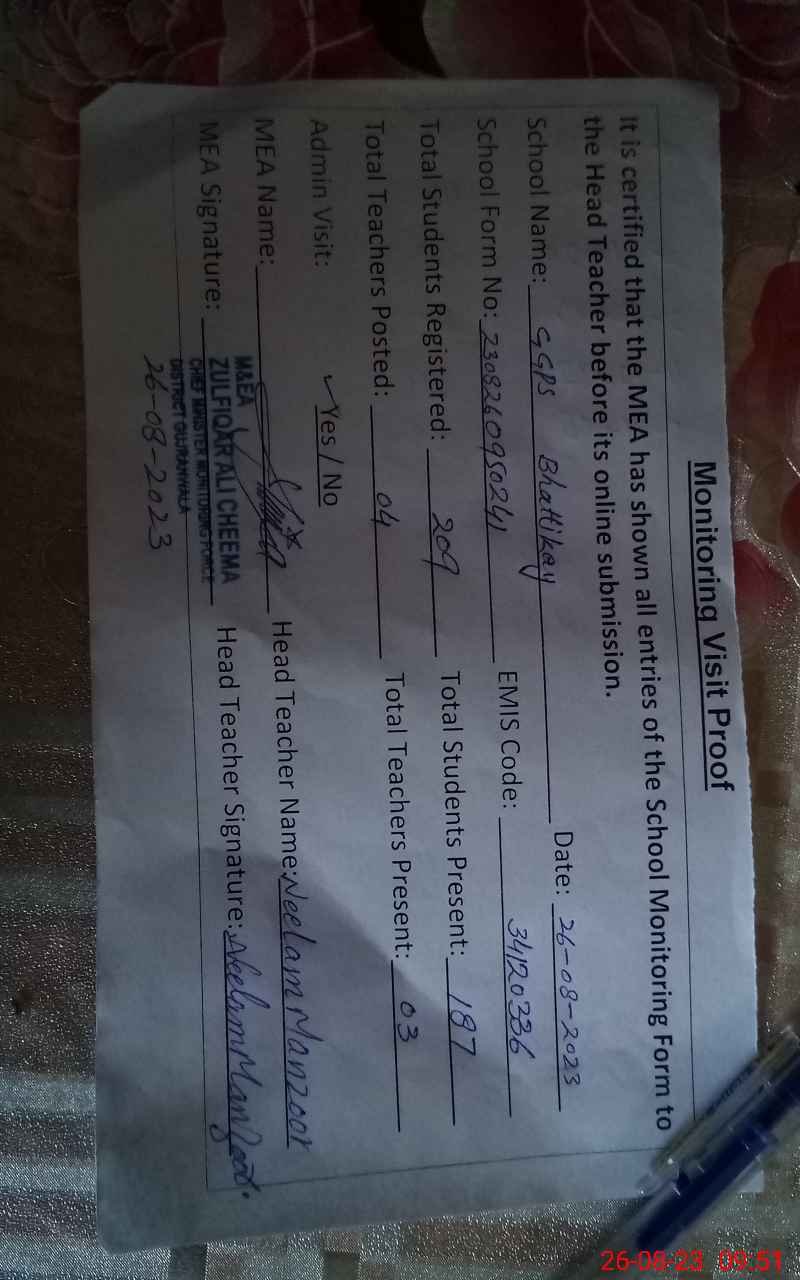 Monitoring Visit Proof
It is certified that the MEA has shown all entries of the School Monitoring Form to
the Head Teacher before its online submission.
School Name: GGPS Bhattikay Date: 26-08-2023
School Form No: 230826095024 EMIS Code: 34120336
Total Students Registered: 209 Total Students Present: 187
Total Teachers Posted: 04 Total Teachers Present: 03
Admin Visit: ✓Yes / No
MEA Name: Head Teacher Name: Neelam Manzoor
MEA Signature: Head Teacher Signature: Neelam Manzoor.
M&EA
ZULFIQAR ALI CHEEMA
CHIEF MINISTER MONITORING FORCE
DISTRICT GUJRANWALA
26-08-2023
26-08-23 09:51